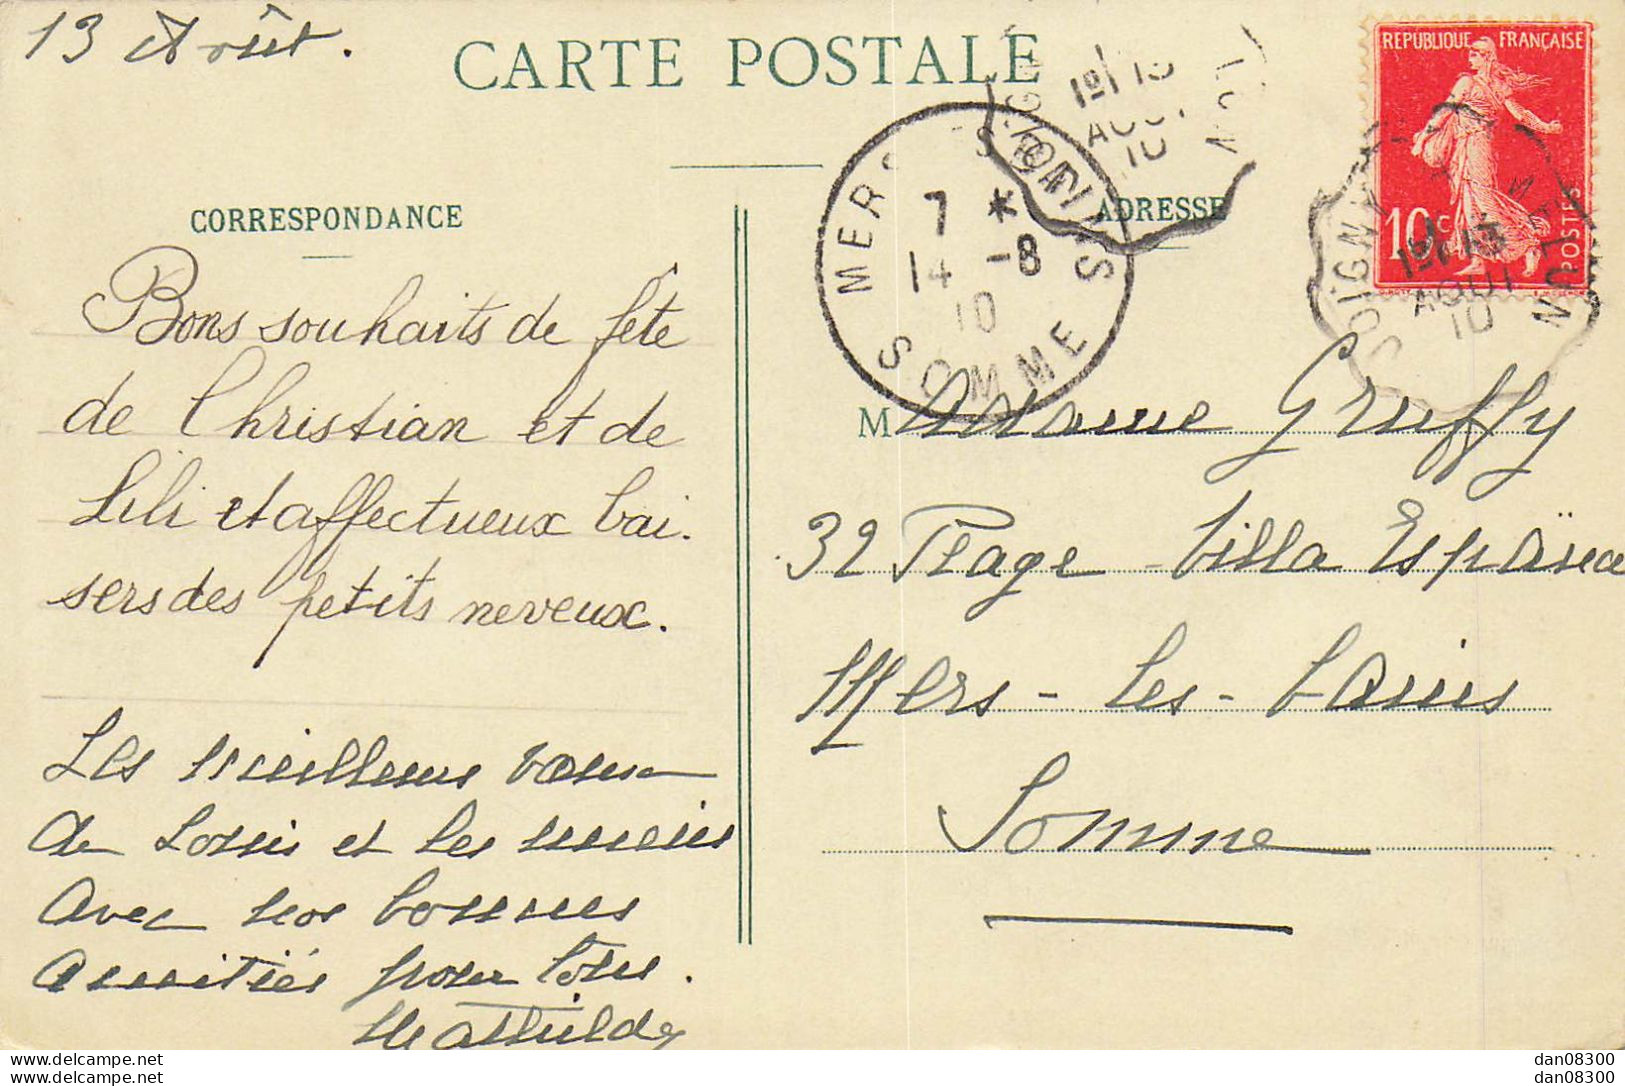 13 Août.
CARTE POSTALE
REPUBLIQUE FRANÇAISE
10c
POSTES
1º/13
AOUT
10
MERS
7 *
14 -8
10
SOMME
1º/13
AOUT
10
CORRESPONDANCE
Bons souhaits de fête
de Christian et de
Lili et affectueux bai.
sers des petits neveux.
Les meilleurs vœux
de Louis et les miens
avec nos bonnes
amitiés pour tous.
Mathilde
ADRESSE
Madame Gruffy
32 Plage - Villa
Mers-les-bains
Somme
www.delcampe.net
www.delcampe.net
dan08300
dan08300